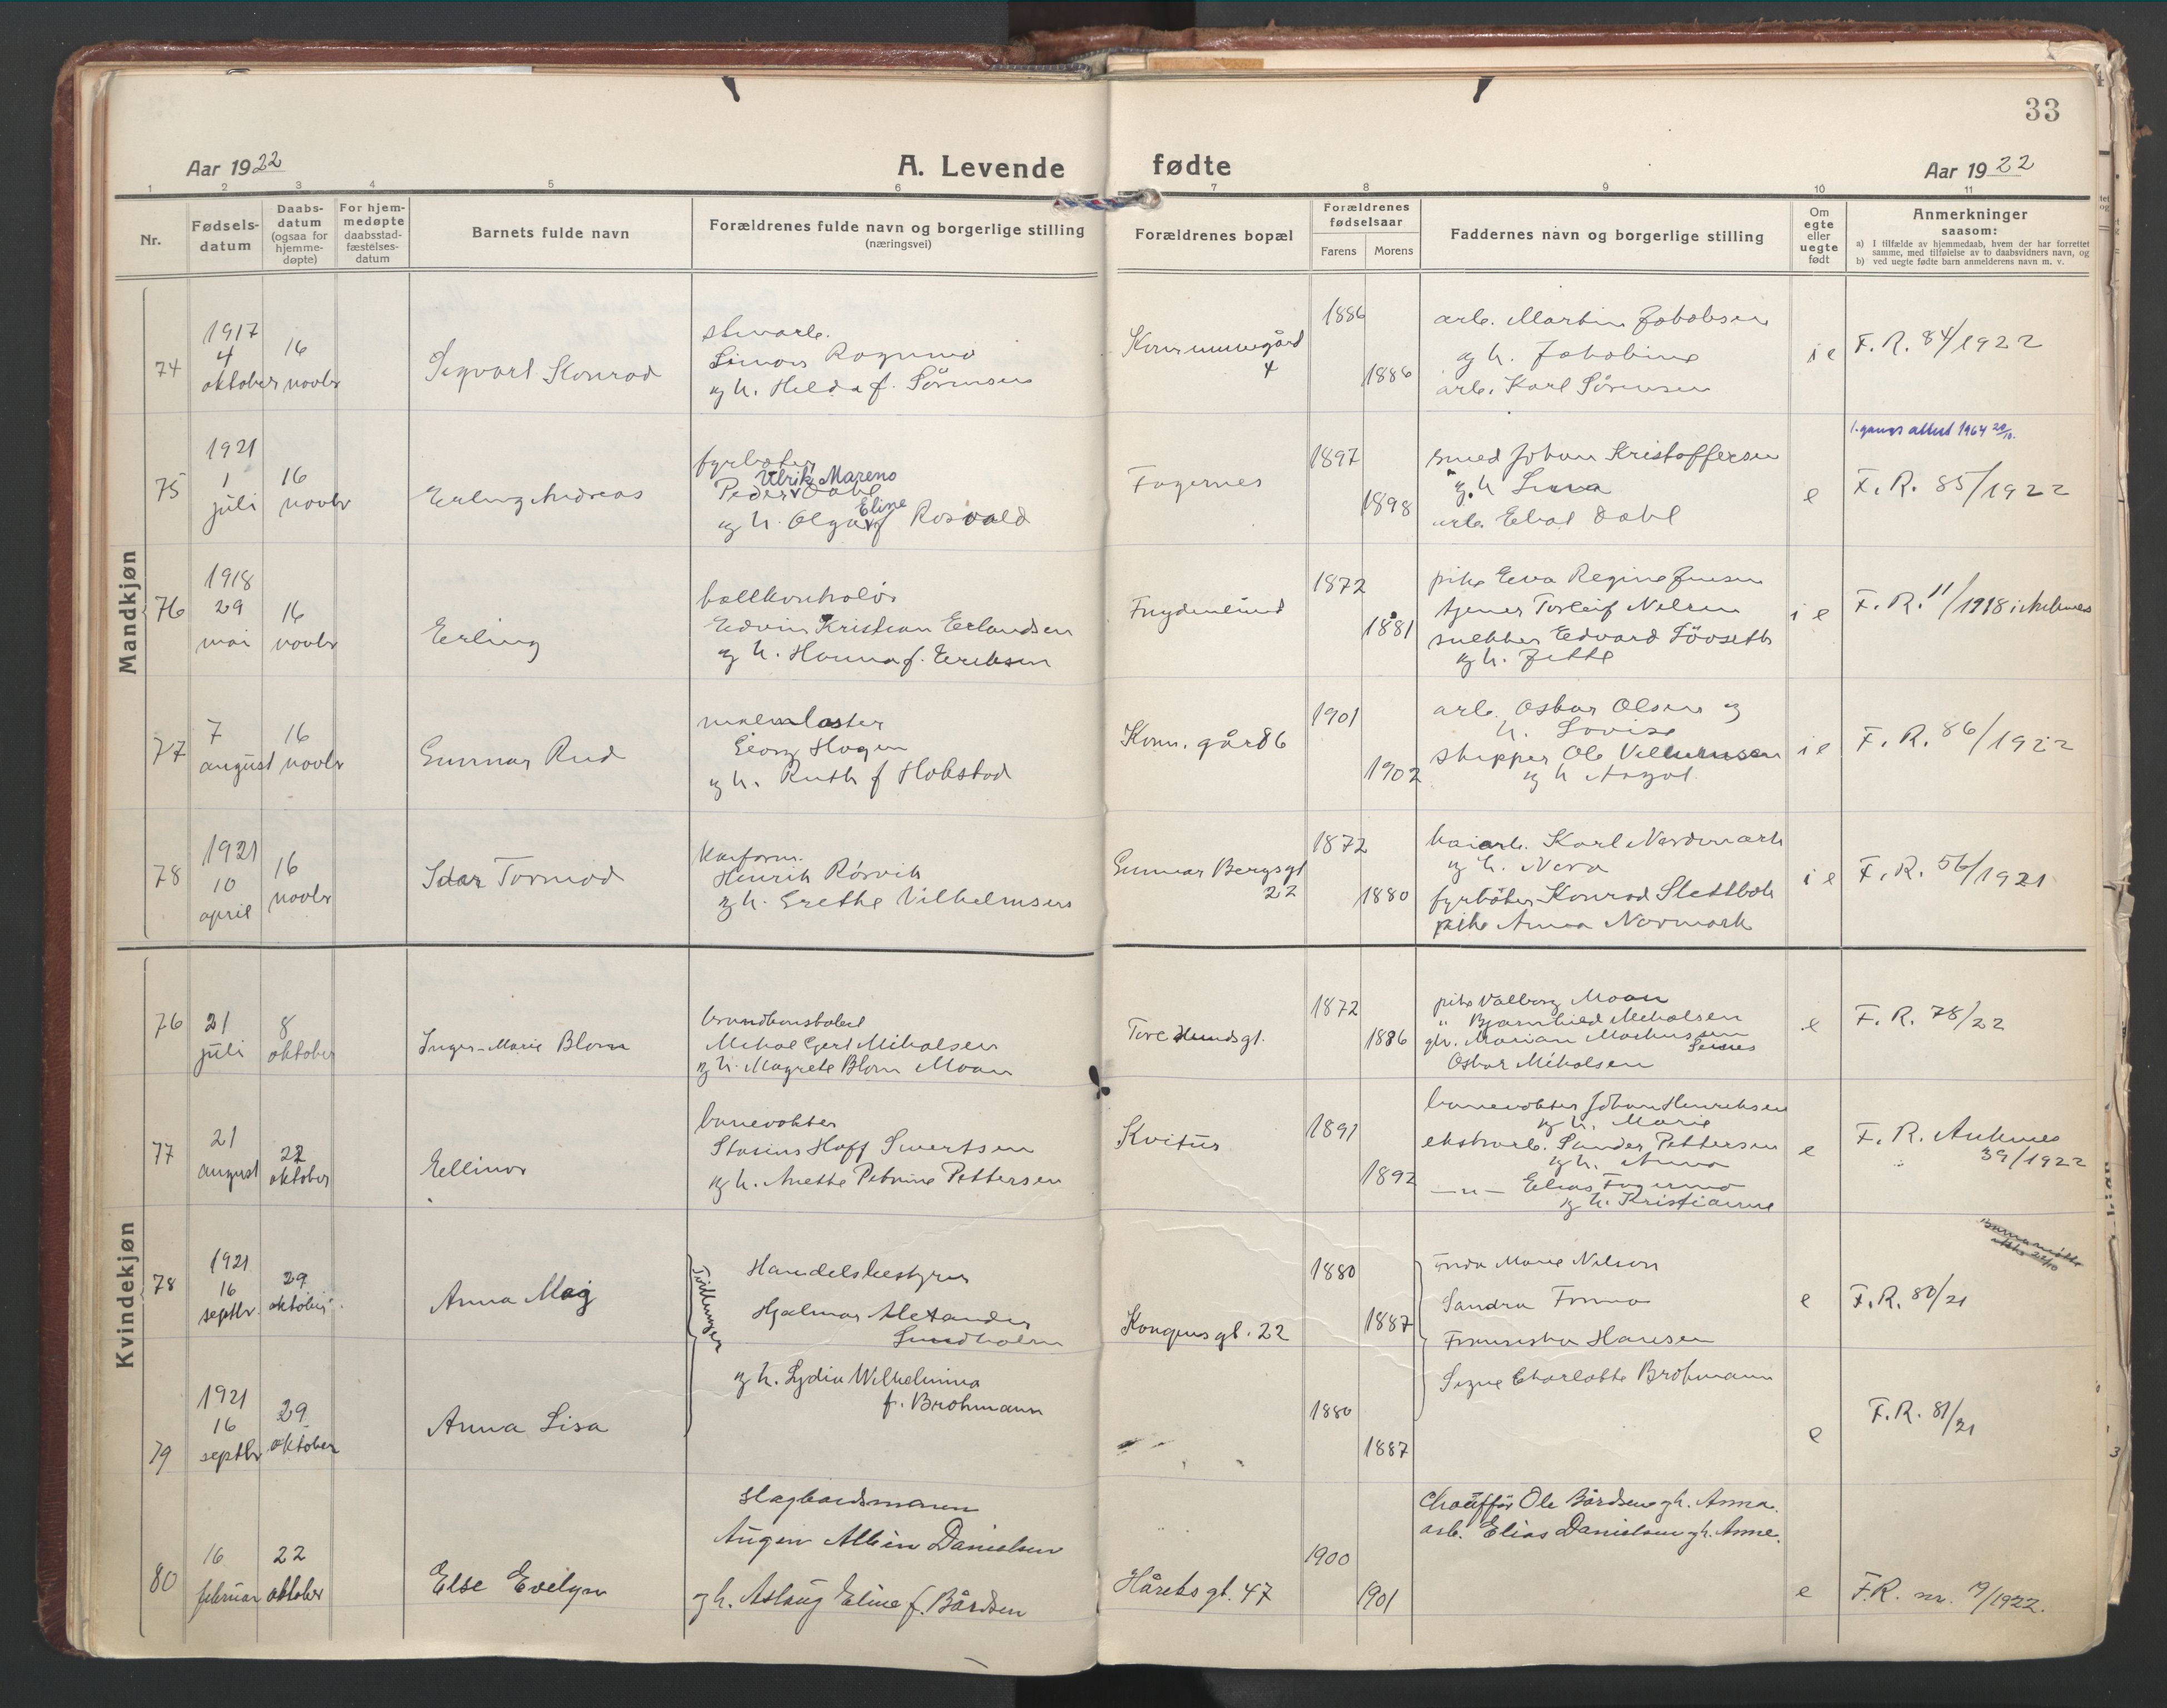 33
Aar 1922
A. Levende fødte
Aar 1922
1 2 3 4 5 6 7 8 9 10 11
Nr.
Fødsels-
datum
Daabs-
datum
(ogsaa for
hjemme-
døpte)
For hjem-
medøpte
daabsstad-
fæstelses-
datum
Barnets fulde navn
Forældrenes fulde navn og borgerlige stilling
(næringsvei)
Forældrenes bopæl
Forældrenes
fødselsaar
Farens Morens
Faddernes navn og borgerlige stilling
Om
egte
eller
uegte
født
Anmerkninger
saasom:
a) I tilfælde av hjemmedaab, hvem der har forrettet
samme, med tilføielse av to daabsvidners navn, og
b) ved uegte fødte barn anmelderens navn m. v.
Mandkjøn
74
1917
4
oktober
16
novbr
Sigvart Konrad
og h. Hilda f. Sörensen
Kommunegård
4
1886
1886
arb. Martin Jakobsen
og h. Jakobine
arb. Karl Sörensen
i e
F. R. 84/1922
75
1921
1
juli
16
novbr
Erling Andreas
fyrböter
Ulrik Mareno
Peder Dahl
Eline
og h. Olga f. Rosvold
Fagernes
1897
1898
smed Johan Kristoffersen
og h
arb. Dahl
e
1. gangs attest 1964 20/10.
F. R. 85/1922
76
1918
29
mai
16
novbr
Erling
Edvin Kristian Erlandsen
og h. Hanna f. Eriksen
Frydenlund
1872
1881
pike Eva Regine Jensen
tjener Torleif Nilsen
snekker Edvard
og h.
i e
F. R. 11/1918 i Ankenes
77
7
august
16
novbr
Gunnar Rud
malmlaster
Georg Hagen
og h. Ruth f Hokstad
Kom. gård 6
1901
1902
arb. Oskar Olsen og
h. Lovise
skipper Ole Vilhelmsen
og h
i e
F. R. 86/1922
78
1921
10
april
16
novbr
Idar Tormod
Henrik Rörvik
og h. Grethe Vilhelmsen
Gunnar Bergsgt
22
1872
1880
kaiarb. Karl Nordmark
og h. Nera
fyrböter Konrad
pike Anna Normark
i e
F. R. 56/1921
Kvindekjøn
76
21
juli
8
oktober
Inger-Marie Blom
brandkonstabel
Mikal Gjert Mikalsen
og h. Magrete Blom Moan
Tore Hundsgt.
1872
1886
pike Valborg Moan
" Bjarnhild Mikalsen
Oskar Mikalsen
e
F. R. 78/22
77
21
august
22
oktober
Ellinor
banevokter
Stasius Hoff Sivertsen
og h. Anette Petrine Pettersen
Kvitur
1891
1892
banevokter Johan Henriksen
og h. Marie
ekstraarb. Sander Pettersen
og h. Anna
— " — Elias
og h. Kristianne
e
F. R. Ankenes
39/1922
78
1921
16
septbr.
29
oktober
Anna Maj
Tvillinger
Handelsbestyrer
Hjalmar Alexander
Lundholm
og h. Lydia Wilhelmina
f. Brohmann
Kongensgt. 22
1880
1887
Frida Marie Nilsen
Sandra
Fransiska Hansen
Signe Charlotte Brohmann
e
F. R. 80/21
79
1921
16
septbr
29
oktober
Anna Lisa
1880
1887
e
F. R. 81/21
80
16
februar
22
oktober
Else Evelyn
Augin Albin Danielsen
og h. Aslaug Eline f. Bårdsen
Håreksgt. 47
1900
1901
Chauffør Ole Bårdsen og h. Anna.
arb. Elias Danielsen og h. Anne.
e
F.R. nr. 19/1922.